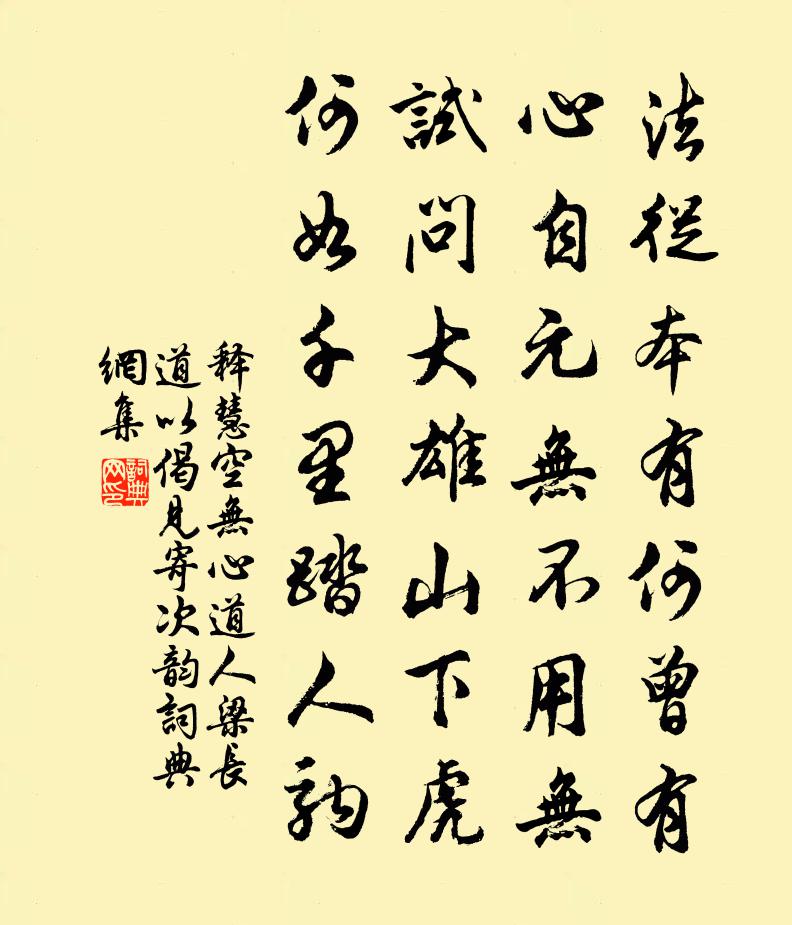 法從本有何曾有
心自元無不用無
試問大雄山下虎
何如千里踏人駒
释慧空無心道人梁長
道以偈見寄次韵詞典
網集
詞典
网印